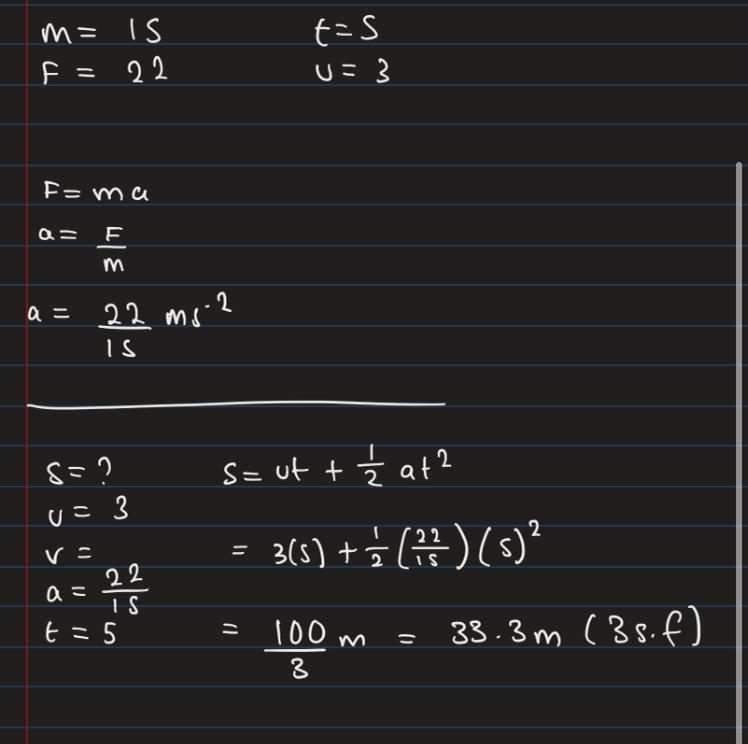 m = 15 t = 5
F = 22 u = 3
F = ma
a = F/m
a = 22/15 ms⁻²
s = ? s = ut + 1/2 at²
u = 3
v = = 3(5) + 1/2 (22/15)(5)²
a = 22/15
t = 5 = 100/3 m = 33.3m (3s.f)